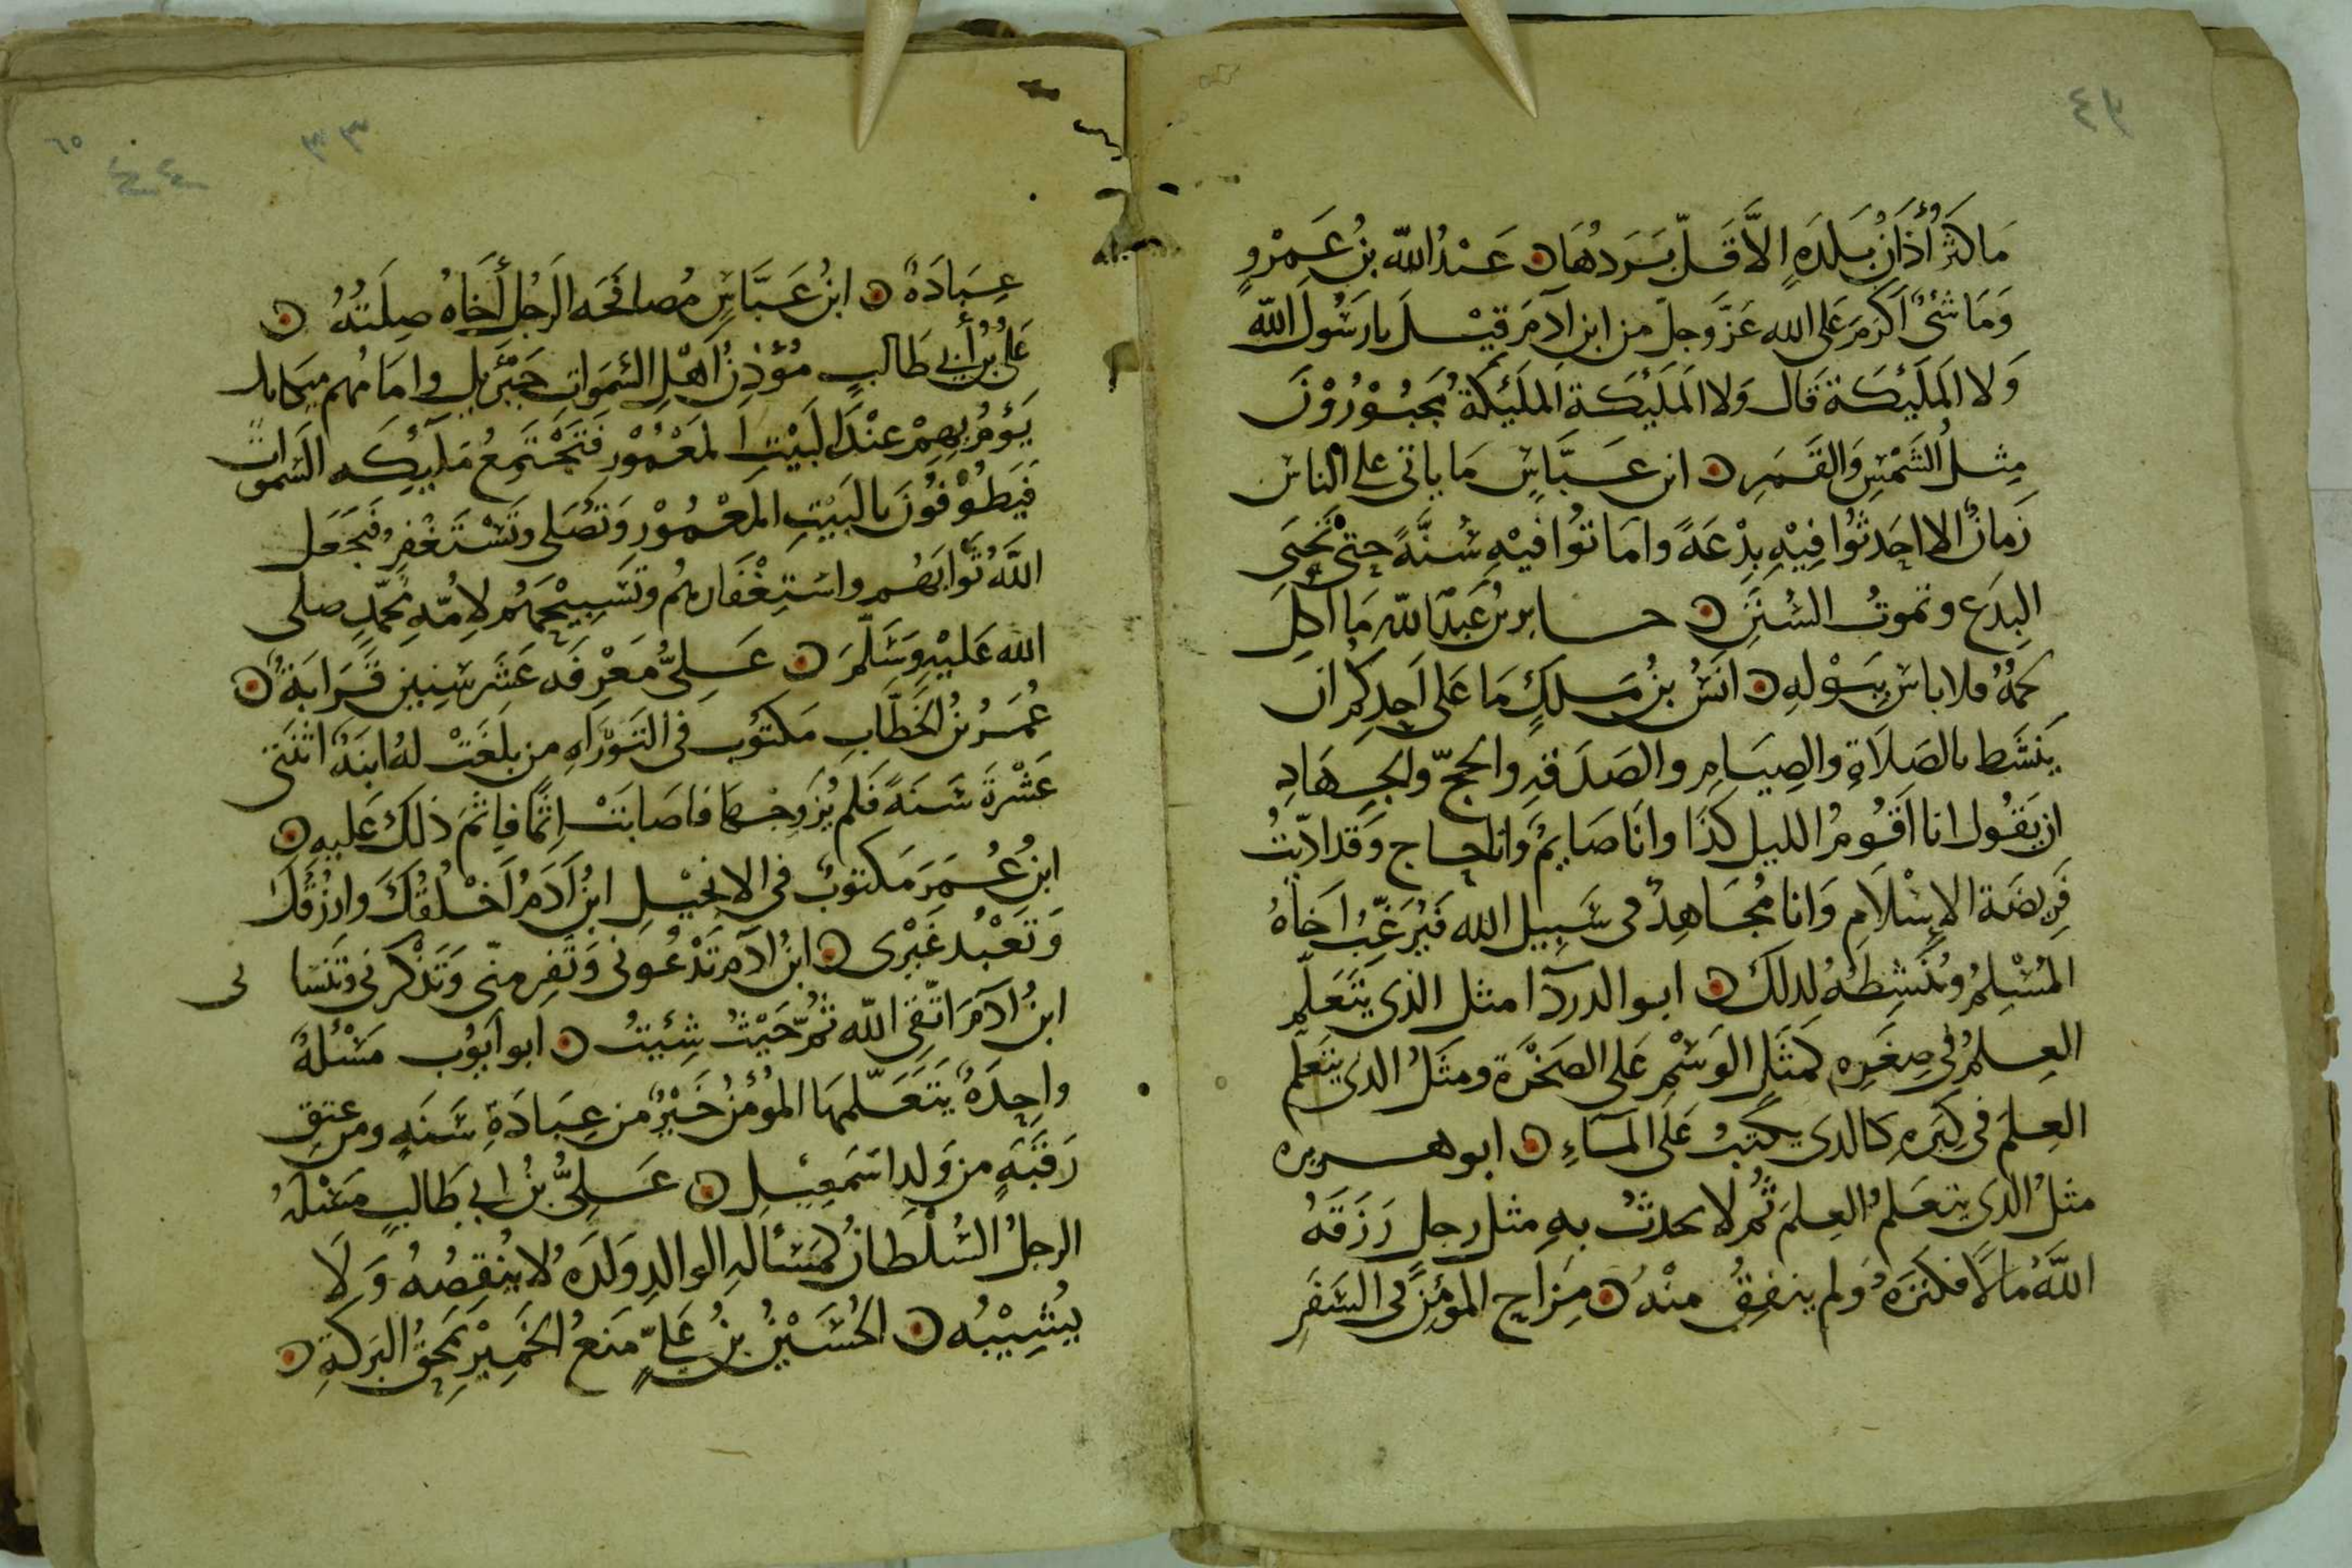 ٤٩
مَا كَثُرَ أَذَانُ بَلدَةٍ الاَّ قَلَّ بَرَدُهَا ه عَبْدُ اللّٰه بنُ عَمْرٍو
وَمَا شَىْءٌ اَكْرَمَ عَلَى الله عَزَّ وجلّ من ابنِ اٰدمَ قِيْلَ يا رَسُولَ اللّٰه
وَلا المَلَئِكَة قَالَ وَلا المَلَئِكَة المَلَئِكَةُ مَجْبُوْرُوْنَ
مِثلُ الشَّمْسِ وَالقَمَرِ ه ابن عَبَّاسٍ مَا ياتى على الناس
زَمانٌ الا احدَثُوا فِيْهِ بِدْعَةً وامَاتُوا فيْهِ سُنَّةً حتى تَحْيَى
البِدَع وتموتُ السُنَنُ ه جابر بنُ عَبدُ اللّٰهِ مَا اُكِلَ
لحمُهُ فلا باس بِبَوْلِهِ ه انَسُ بنُ مَلِكٍ مَا عَلى اَحدِكُم ان
يَنشَط بالصَلاَةِ والصِيَامِ والصَدَقةِ والحجّ والجِهَادِ
ان يَقُولَ انا اَقُومُ الليل كَذَا وانَا صَايِمٌ وَانا حاج وَقَد ادّيتُ
فَرِيضَة الاِسْلاَمِ وَانا مُجَاهِدٌ فى سَبِيل الله فَيُرَغِّبُ اَخَاهُ
المُسْلِمُ وَيُنَشِطُهُ لِذلكَ ه ابو الدردآ مثل الذى يَتَعَلَّم
العِلمُ فى صِغَرِهِ كَمَثَلِ الوَسْمِ عَلى الصَخْرَة ومَثَلُ الذى يتَعَلَّم
العِلمَ فى كِبَرِهِ كالذى يَكتبُ عَلَى المَآءِ ه ابو هريره
مثلُ الذى يتعَلمُ العِلمَ ثُم لا يحدثُ بهِ مثل رجلٍ رَزَقَهُ
اللّٰهُ مالاً فكنزَهُ وَلم ينفِقُ منْهُ ه مِزَاح المؤمِن فى السَفَرِ
٦٥
٤٤
٣٣
عِبَادَةٌ ه ابنُ عَبَّاسٍ مُصافَحَه الرَجُلِ أَخَاهُ صِلَتُهُ ه
عَلىُّ بنُ أَبى طَالبٍ مُؤَذِنُ اَهْلِ السَمَواتِ جَبْرَئِيل وامَامُهم ميكايل
يَؤُمُّ بِهِمْ عِنْدَ البَيْتِ المعْمُوْرِ فَتَجْتَمِعُ مَلَآئِكه السَموَات
فَيَطُوْفُوْنَ بالبَيْتِ المَعْمُوْرِ وَتُصَلى وتَسْتَغْفِرُ فَيَجْعَل
اللَّهُ ثَوَابَهُم واسْتِغْفَارهُم وتَسْبِيْحَهُم لاِمّهِ مُحَمَّدٍ صلى
الله عَليْهِ وَسَلَّمَ ه عَلِىٌّ مَعْرِفَه عَشَر سِنِيْن قَرَابَةٌ ه
عُمَرُ بنُ الخَطَّابِ مَكتوب فى التَوْرَاه من بلَغَتْ لهُ ابنَةٌ اثنَتى
عَشْرَةَ سَنَةً فَلم يُزَوِجْهَا فاصَابَتْ اِثْمًا فاِثمَ ذٰلكَ عَليه ه
ابنُ عُمَرَ مَكتوبٌ فى الاِنجيْلِ ابنُ اَدَمُ اَخْلُقُكَ وارْزُقُكَ
وَتَعْبُد غَيْرى ه ابنُ اٰدَم تَدْعُونى وَتَفِر منّى وَتَذْكرنى وَتَنسَا نى
ابنُ اٰدَمَ اتَّقى اللّٰه ثُمَّ حَيْثُ شِئتُ ه ابو ايَوُب مَسْئلَةٌ
واحِدَةٌ يَتَعَلّمهَا المُؤْمنُ خَيْرٌ من عِبَادَةِ سَنَهٍ ومن عتِق
رَقَبَه من وَلدِ اسْمعِيْلِ ه عَلِىُّ بنُ ابى طَالبٍ مَسْئلَه
الرجلُ السُلْطَانُ كَمَسْألهِ الوالدِ وَلَدَهُ لا يُنقِصُهُ وَلَا
يُشِيْبُه ه الحُسَيْنُ بنُ عَلىٍّ مَنعُ الخَمِيْر يمَحِقُ البَركَةِ ه